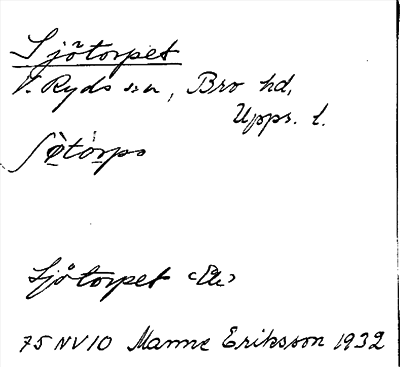 Sjötorpet
V. Ryds sn, Bro hd,
Upps. l.
Sjötorpet <Ek>
75 NV 10 Manne Eriksson 1932